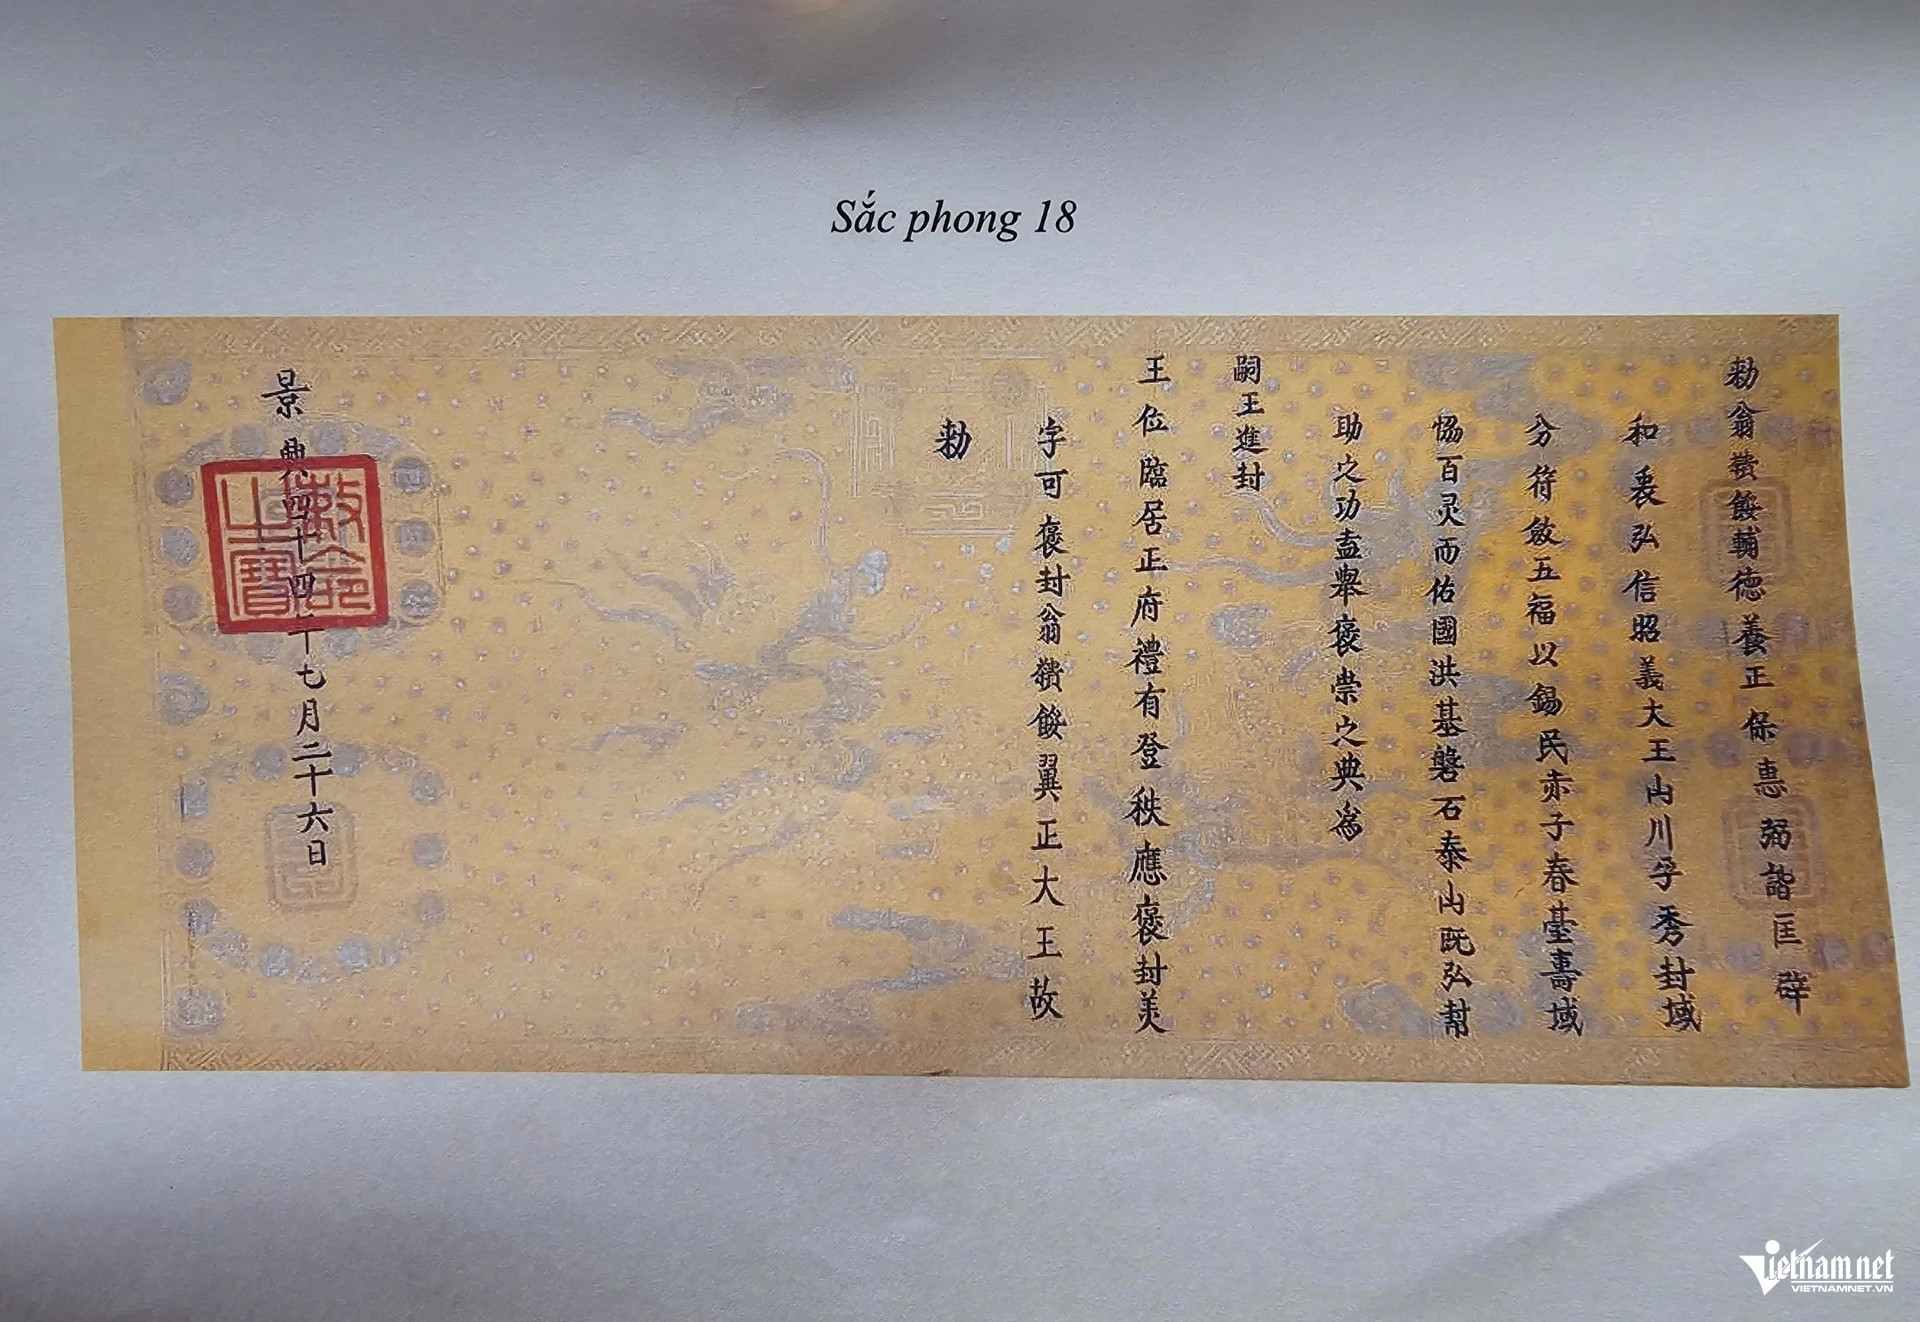 Sắc phong 18
勑翁 輔德養正保惠弼諧匡辟
和衷弘信昭義大王山川孚秀封域
分符斂五福以錫民赤子春臺壽域
恊百灵而佑國洪基磐石泰山既弘幇
助之功盍舉褒崇之典為
嗣王進封
王位臨居正府禮有登秩應褒封美
字可褒封翁 翼正大王故
勑
景興四十四年七月二十六日
敕命之寶
Vietnam net
VIETNAMNET.VN